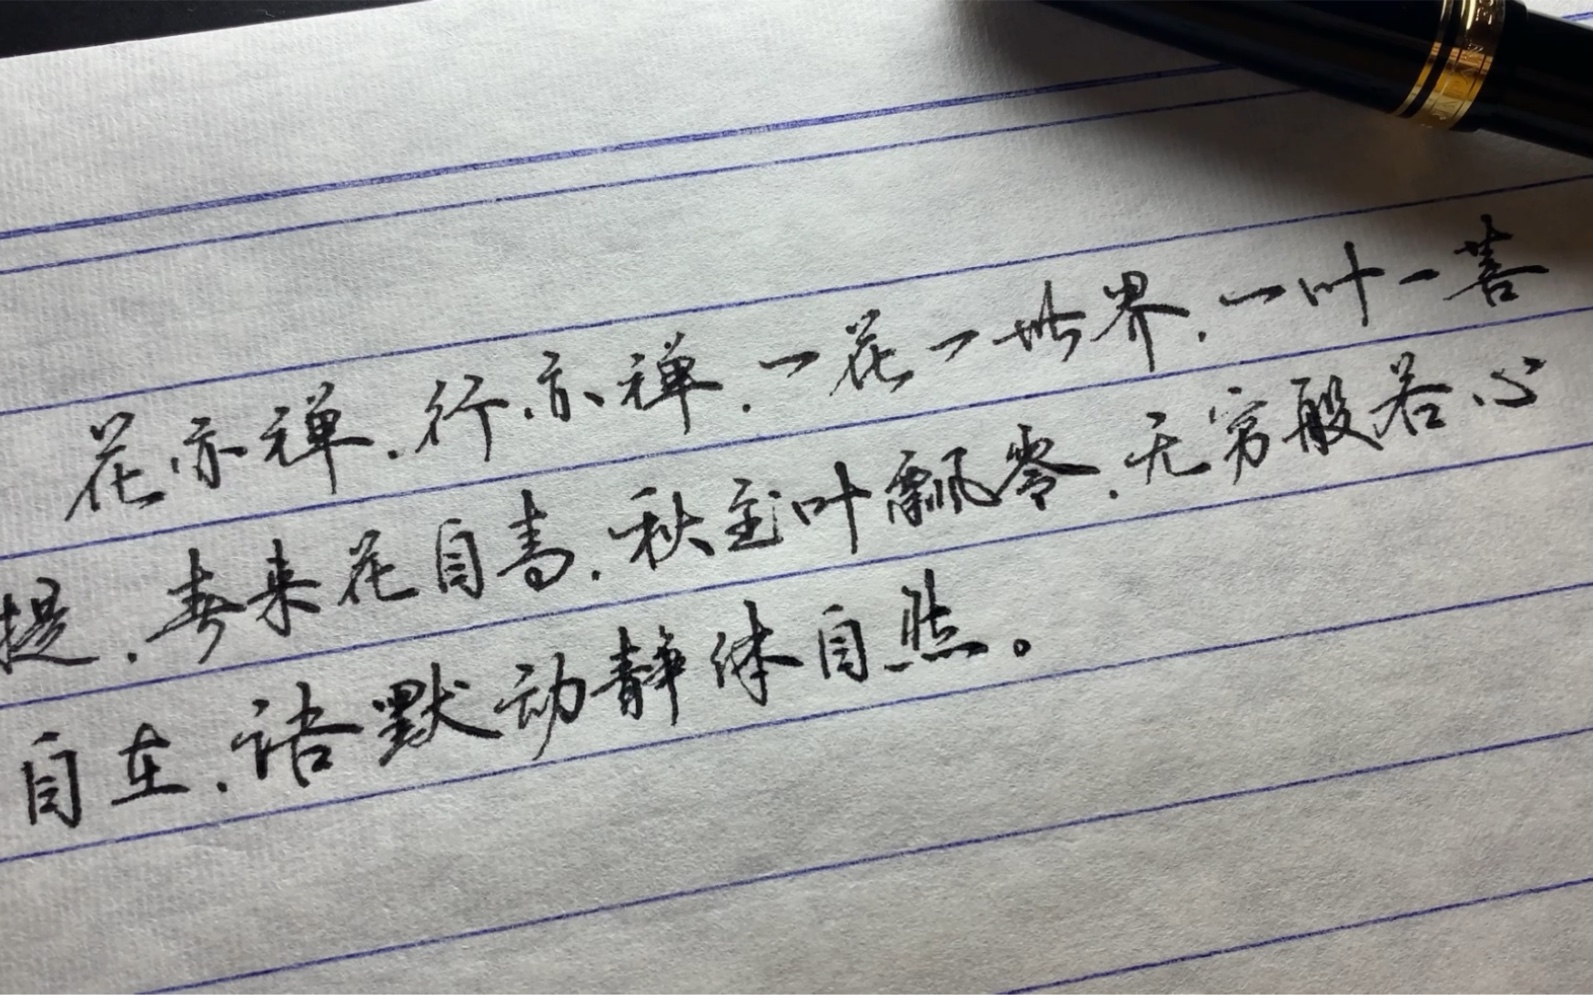 花亦禅.行亦禅.一花一世界.一叶一菩
提.春来花自青.秋至叶飘零.无穷般若心
自在.语默动静体自然。